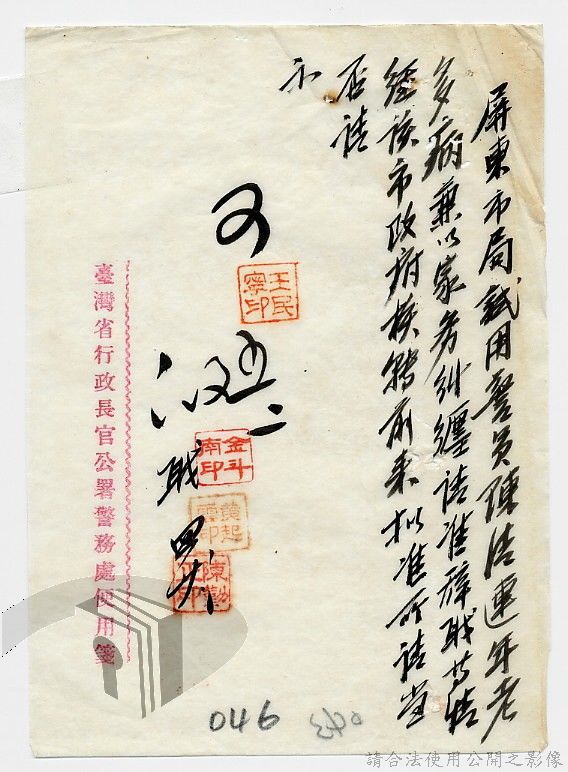 屏東市局試用警員陳法連年老
多病兼以家務糾纏請准辭職等情
經該市政府核轉前來拟准所請當
否請
示
可
王民寧印
職
金斗南印
臺灣省行政長官公署警務處便用箋
046
043
請合法使用公開之影像